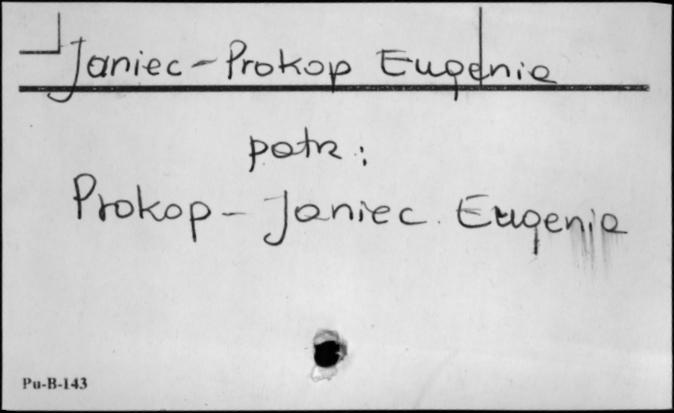 Janiec - Prokop Eugenia
patrz:
Prokop - Janiec Eugenia
Pu-B-143